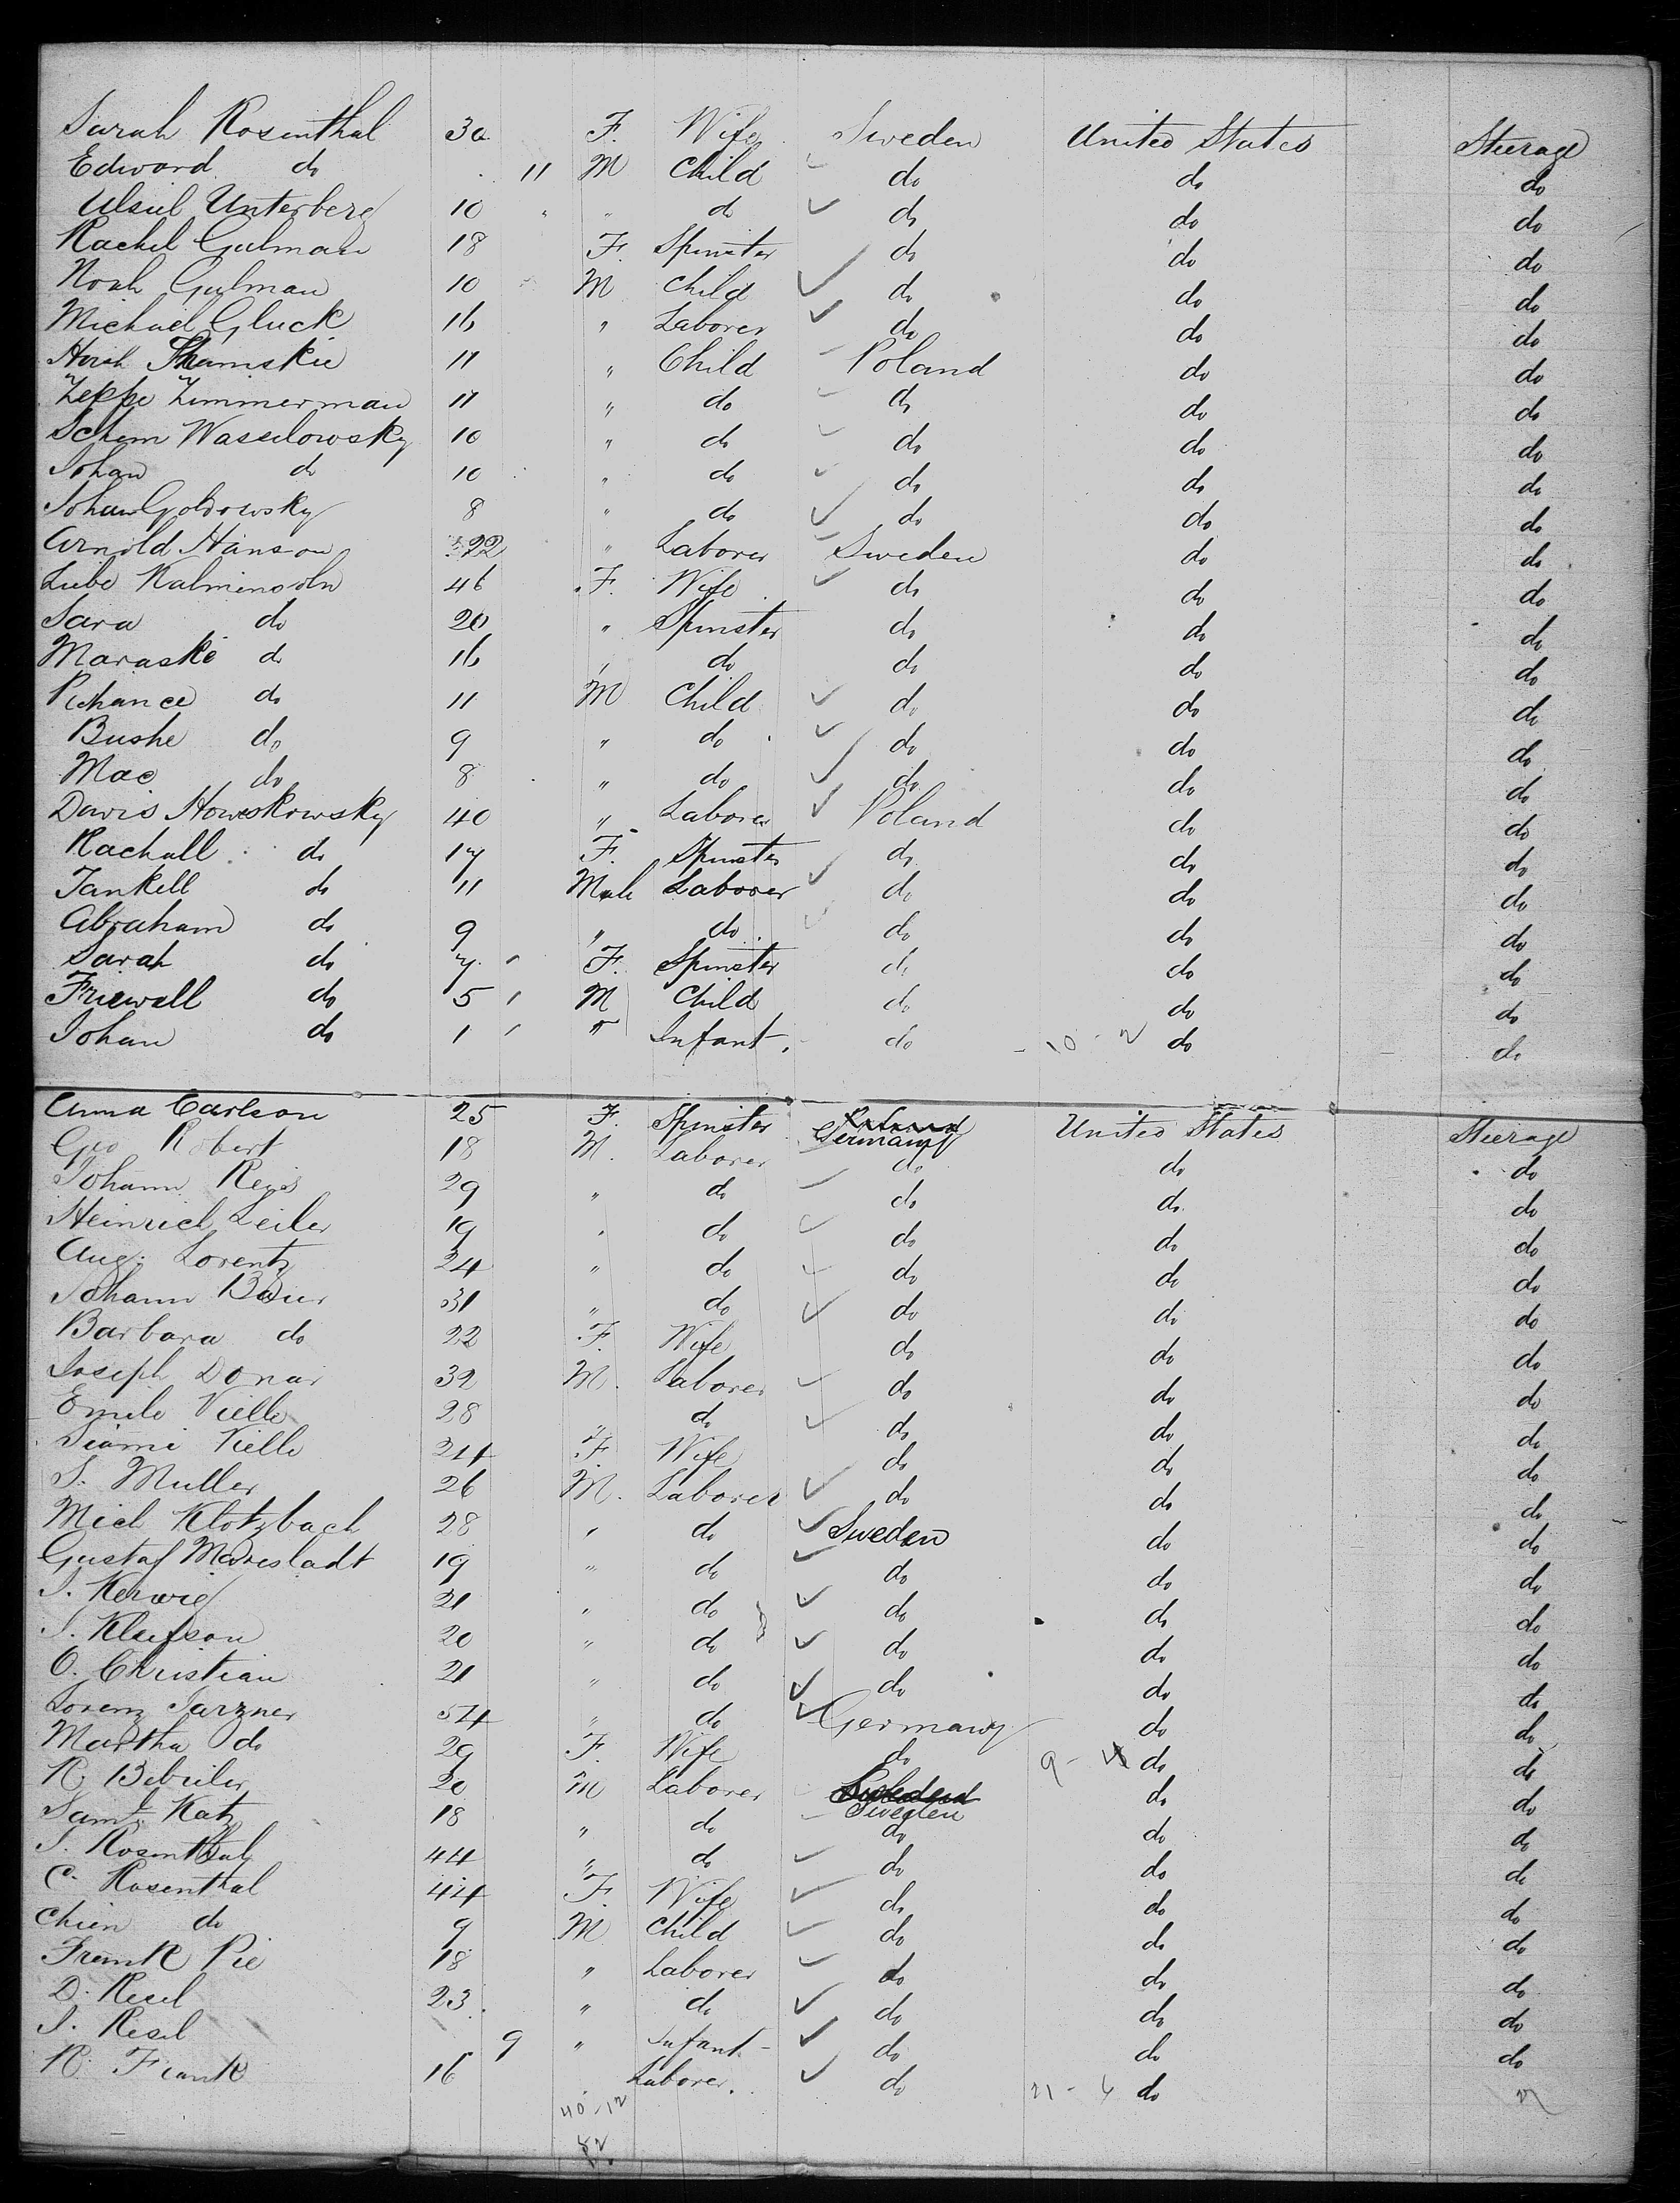 Sarah Rosenthal 30 F. Wife Sweden United States Steerage
Edward do 11 M Child do do do
Ulsiel Unterberg 10 " do do do do
Rachel Gulman 18 F. Spinster do do do
Noah Gulman 10 M Child do do do
Michael Gluck 16 " Laborer do do do
Hirsh Shamskie 11 " Child Poland do do
Zeppe Zimmerman 11 " do do do do
Schem Wassilowsky 10 " do do do do
Johan do 10 " do do do do
Johan Goldowsky 8 " do do do do
Arnold Hanson 22 " Laborer Sweden do do
Liebe Kalminsohn 46 F. Wife do do do
Sara do 20 " Spinster do do do
Maraske do 16 " do do do do
Richance do 11 M Child do do do
Bushe do 9 " do do do do
Mac do 8 " do do do do
Davis Howskowsky 40 " Laborer Poland do do
Rachall do 17 F. Spinster do do do
Jankell do 11 Male Laborer do do do
Abraham do 9 " do do do do
Sarah do 7 F. Spinster do do do
Friewell do 5 M Child do do do
Johan do 1 " Infant. do 10 - 2 do do
Anna Carlson 25 F. Spinster Germany United States Steerage
Geo Robert 18 M. Laborer do do do
Johann Reiss 29 " do do do do
Heinrich Leiler 19 " do do do do
Aug. Lorentz 24 " do do do do
Johann Bauer 31 " do do do do
Barbara do 22 F. Wife do do do
Joseph Donar 32 M. Laborer do do do
Emile Vielle 28 " do do do do
Siami Vielle 24 F. Wife do do do
S. Muller 26 M. Laborer do do do
Mich Klotzbach 28 " do Sweden do do
Gustaf Marestadt 19 " do do do do
J. Kerwig 21 " do do do do
J. Klefson 20 " do do do do
O. Christian 21 " do do do do
Lorenz Sarzner 54 " do Germany do do
Martha do 29 F. Wife do 9 - 4 do do
R. Bebriler 20 M Laborer Sweden do do
Saml. Katz 18 " do do do do
J. Rosenthal 44 " do do do do
C. Rosenthal 44 F. Wife do do do
Chien do 9 M Child do do do
Frank Pie 18 " Laborer do do do
D. Resel 23 " do do do do
J. Resel 9 " Infant do do do
R. Frank 16 Laborer. do 21 - 6 do
40 - 12
52